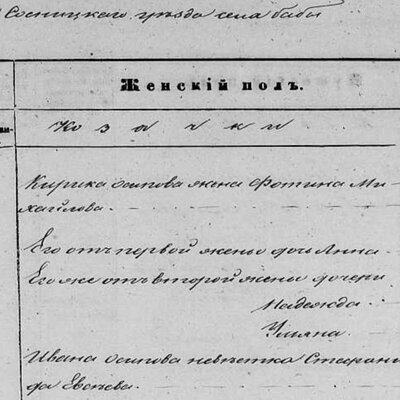 Сосницкаго уѣзда села Бабы
Женскій полъ.
Козачки
Кирика Осипова жена Фотина Ми-
хайлова.
Его отъ первой жены дочь Анна.
Его же отъ второй жены дочери
Надежда.
Ульяна.
Ивана Осипова невѣстка Стефани-
да Евсѣева.